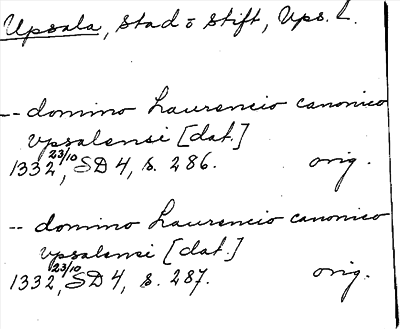 Upsala, Stad o Stift, Ups. L.
-- domino Laurencio canonico
vpsalensi [dat.]
1332 23/10, SD 4, s. 286. orig.
-- domino Laurencio canonico
vpsalensi [dat.]
1332 23/10, SD 4, s. 287. orig.